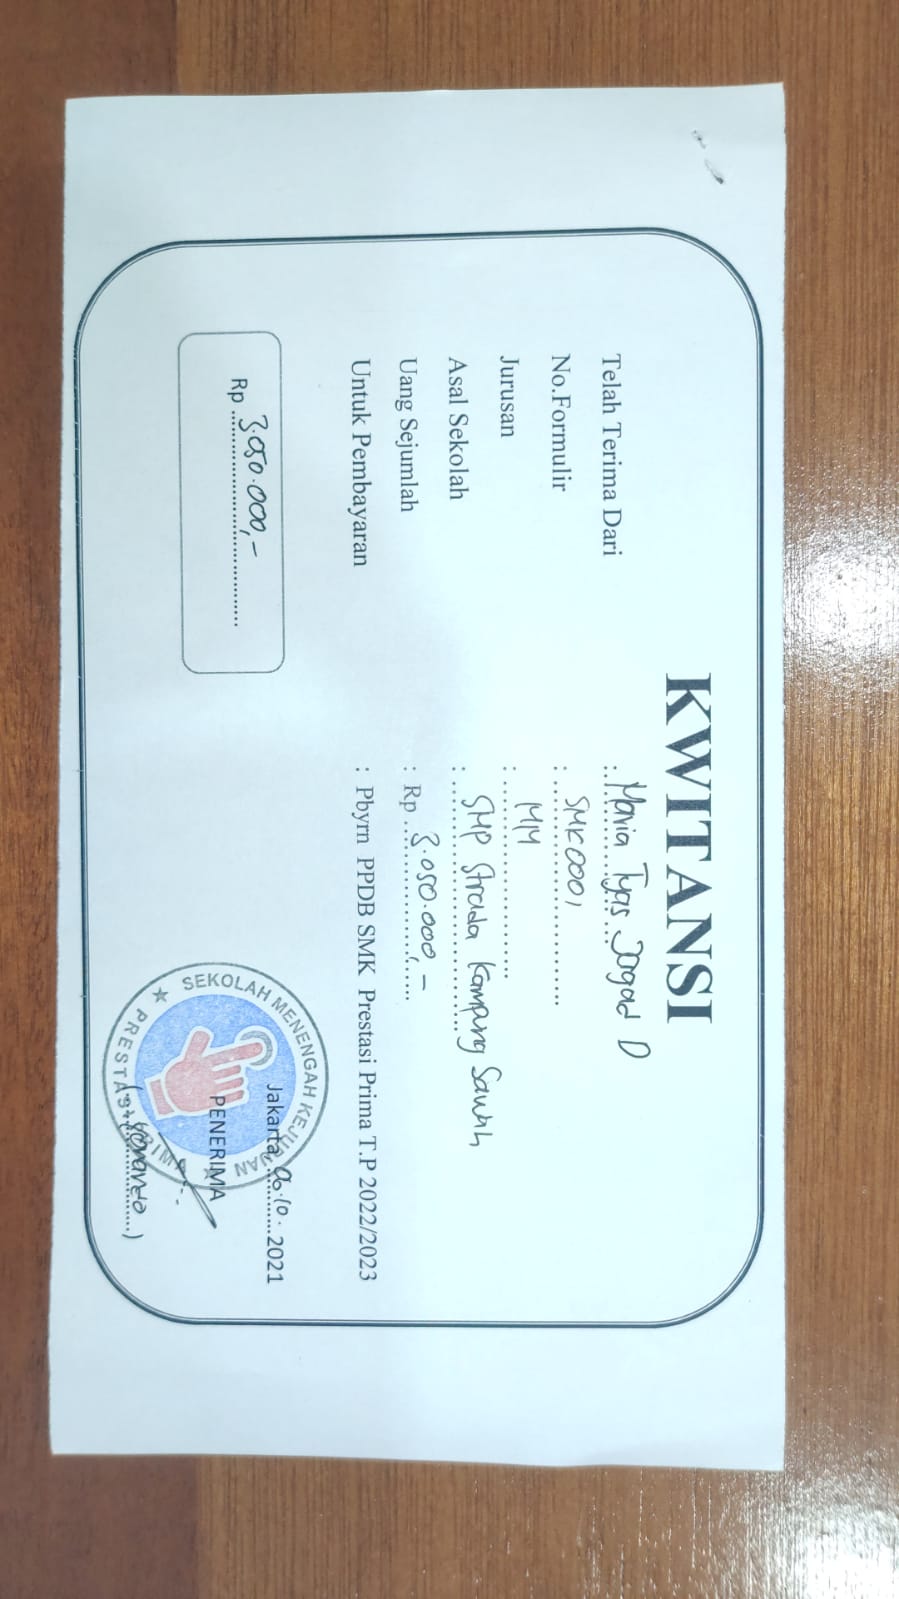 KWITANSI
Telah Terima Dari : Maria Tyas Jogad D
No.Formulir : SMK0001
Jurusan : MM
Asal Sekolah : SMP Strada Kampung Sawah
Uang Sejumlah : Rp 3.050.000,-
Untuk Pembayaran : Pbyrn PPDB SMK Prestasi Prima T.P 2022/2023
Rp 3.050.000,-
Jakarta, 06.10.2021
PENERIMA
SEKOLAH MENENGAH KEJURUAN
PRESTASI PRIMA